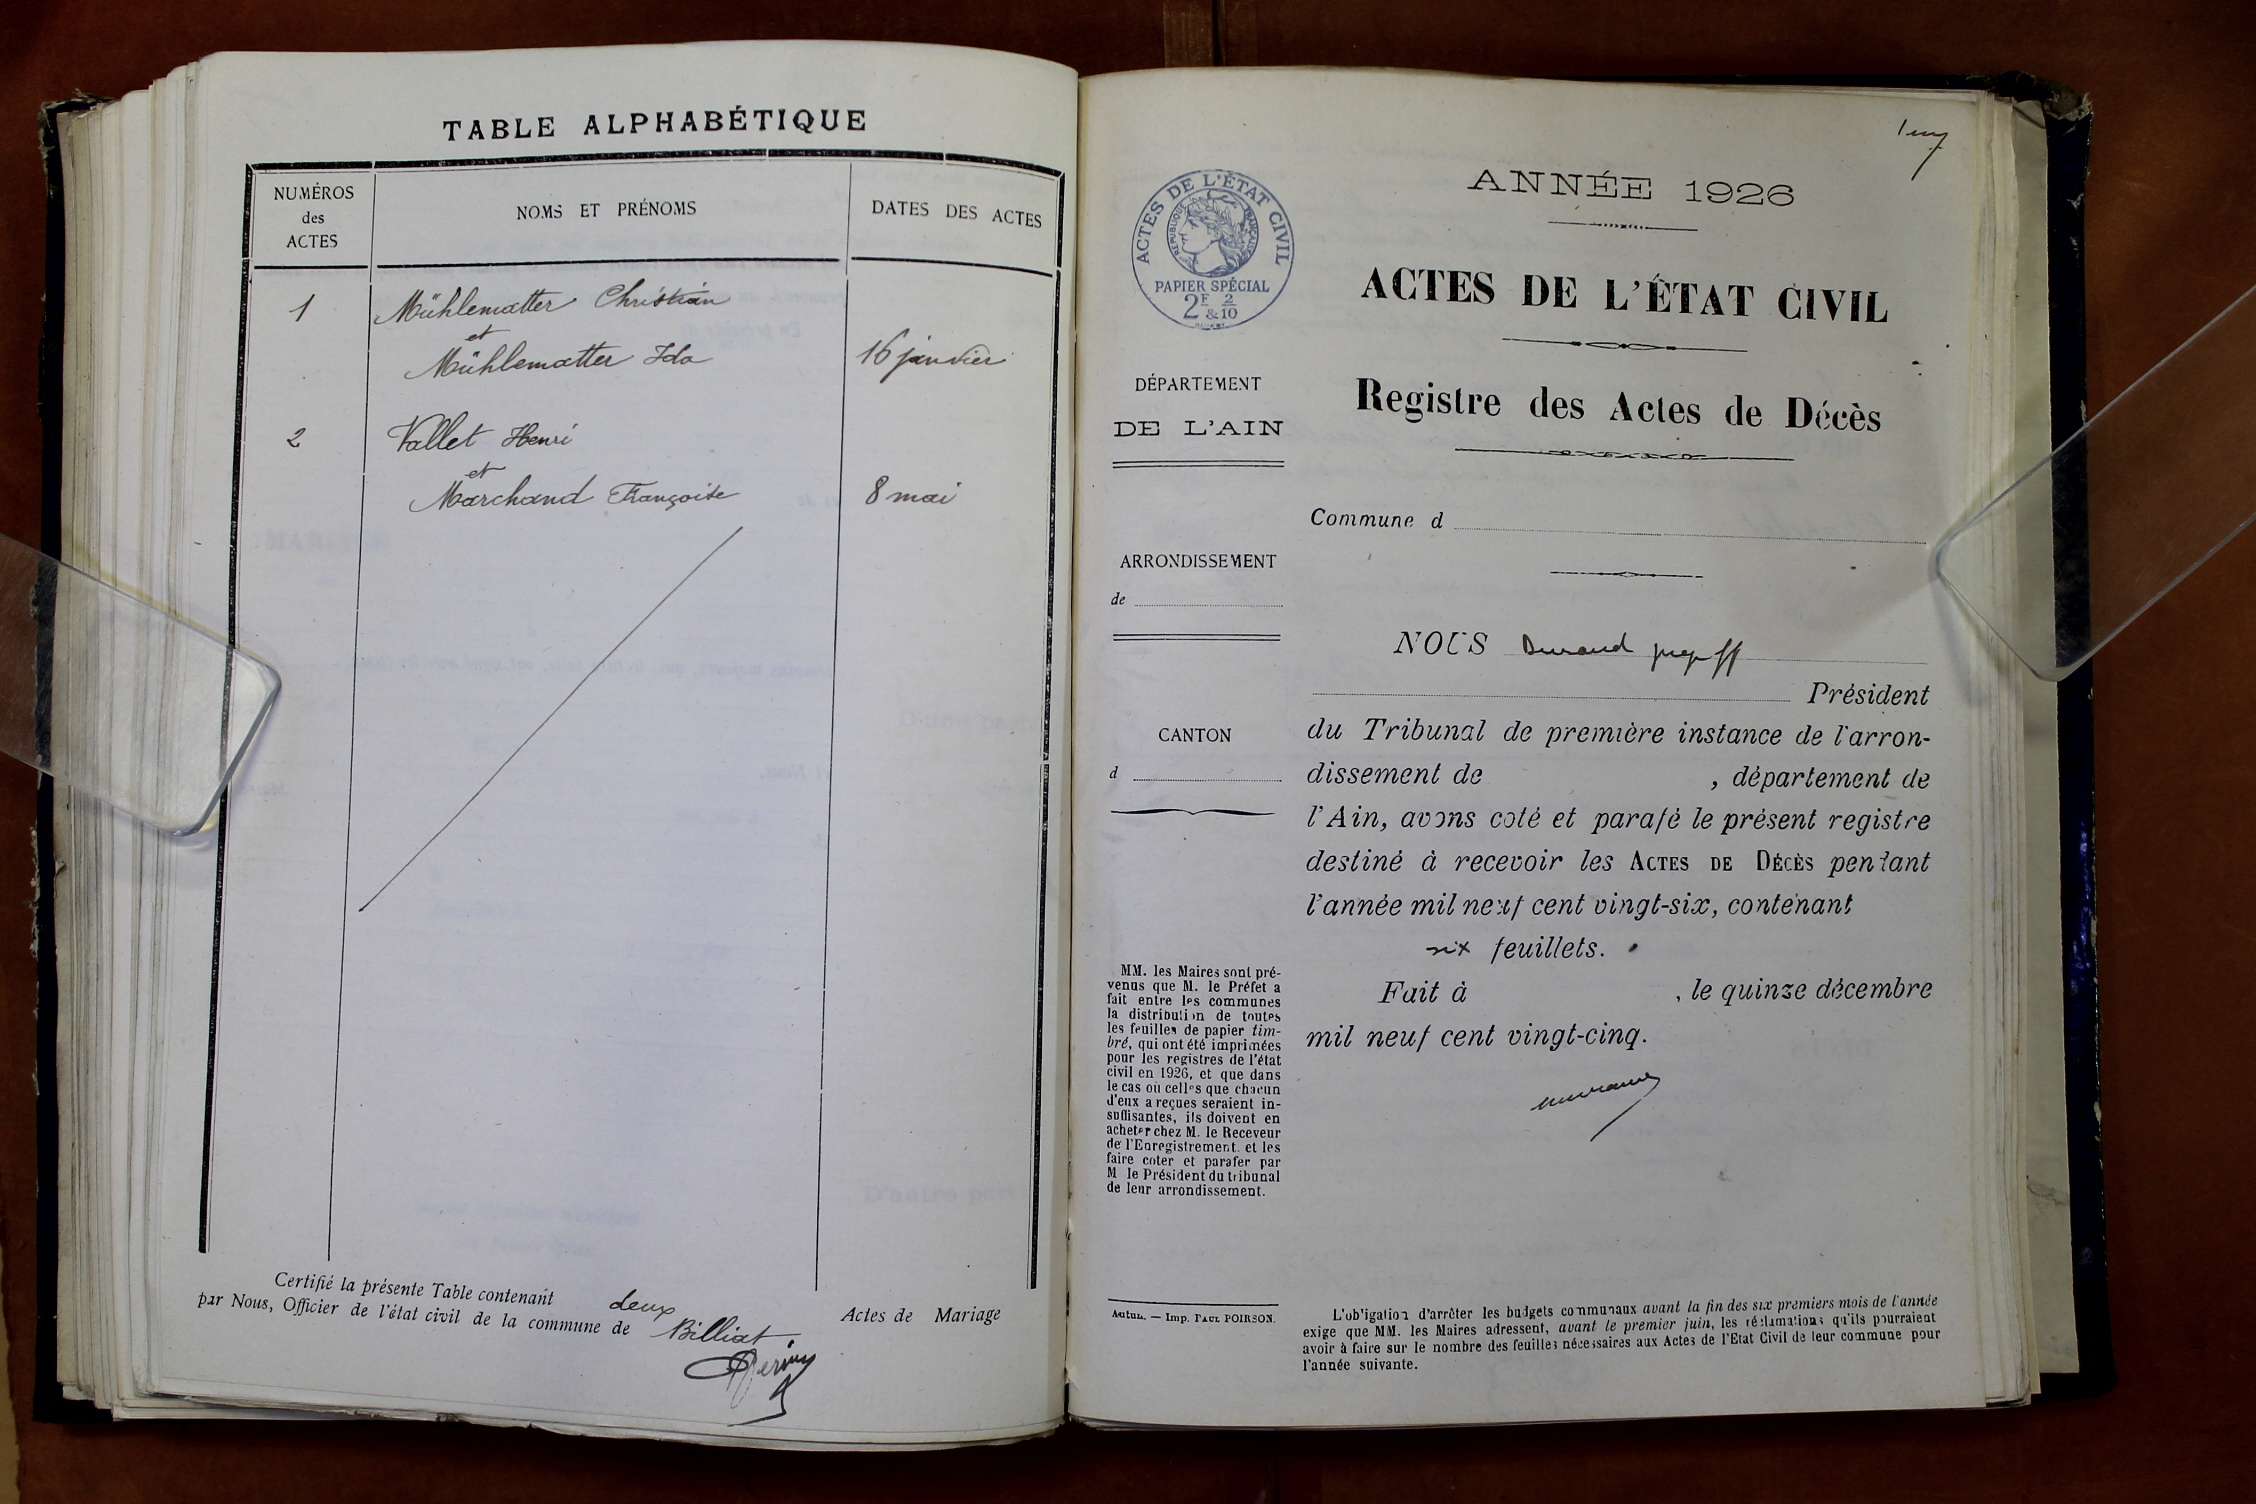 TABLE ALPHABÉTIQUE
NUMÉROS
des
ACTES
NOMS ET PRÉNOMS
DATES DES ACTES
1
Mühlematter Christian
et
Mühlematter Ida
16 janvier
2
Vallet Henri
et
Marchand Françoise
8 mai
Certifié la présente Table contenant deux Actes de Mariage
par Nous, Officier de l'état civil de la commune de Billiat.
ANNÉE 1926
ACTES DE L'ÉTAT CIVIL
RÉPUBLIQUE FRANÇAISE
PAPIER SPÉCIAL
2F 2
&10
ACTES DE L'ÉTAT CIVIL
Registre des Actes de Décès
DÉPARTEMENT
DE L'AIN
Commune d
ARRONDISSEMENT
de
CANTON
d
NOUS Durand
Président
du Tribunal de première instance de l'arron-
dissement de , département de
l'Ain, avons coté et parafé le présent registre
destiné à recevoir les ACTES DE DÉCÈS pendant
l'année mil neuf cent vingt-six, contenant
six feuillets.
Fait à , le quinze décembre
mil neuf cent vingt-cinq.
MM. les Maires sont pré-
venus que M. le Préfet a
fait entre les communes
la distribution de toutes
les feuilles de papier tim-
bré, qui ont été imprimées
pour les registres de l'état
civil en 1926, et que dans
le cas où celles que chacun
d'eux a reçues seraient in-
suffisantes, ils doivent en
acheter chez M. le Receveur
de l'Enregistrement. et les
faire coter et parafer par
M le Président du tribunal
de leur arrondissement.
Autun. — Imp. PAUL POIRSON.
L'obligation d'arrêter les budgets communaux avant la fin des six premiers mois de l'année
exige que MM. les Maires adressent, avant le premier juin, les réclamations qu'ils pourraient
avoir à faire sur le nombre des feuilles nécessaires aux Actes de l'Etat Civil de leur commune pour
l'année suivante.